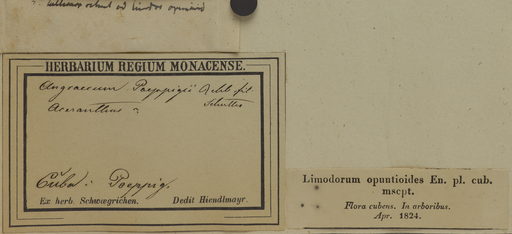 HERBARIUM REGIUM MONACENSE.
Angraecum Poeppigii Rchb. fil.
Aeranthus
Cuba: Poeppig.
Ex herb. Schwægrichen. Dedit Hiendlmayr.
Limodorum opuntioides En. pl. cub.
mscpt.
Flora cubens. In arboribus.
Apr. 1824.